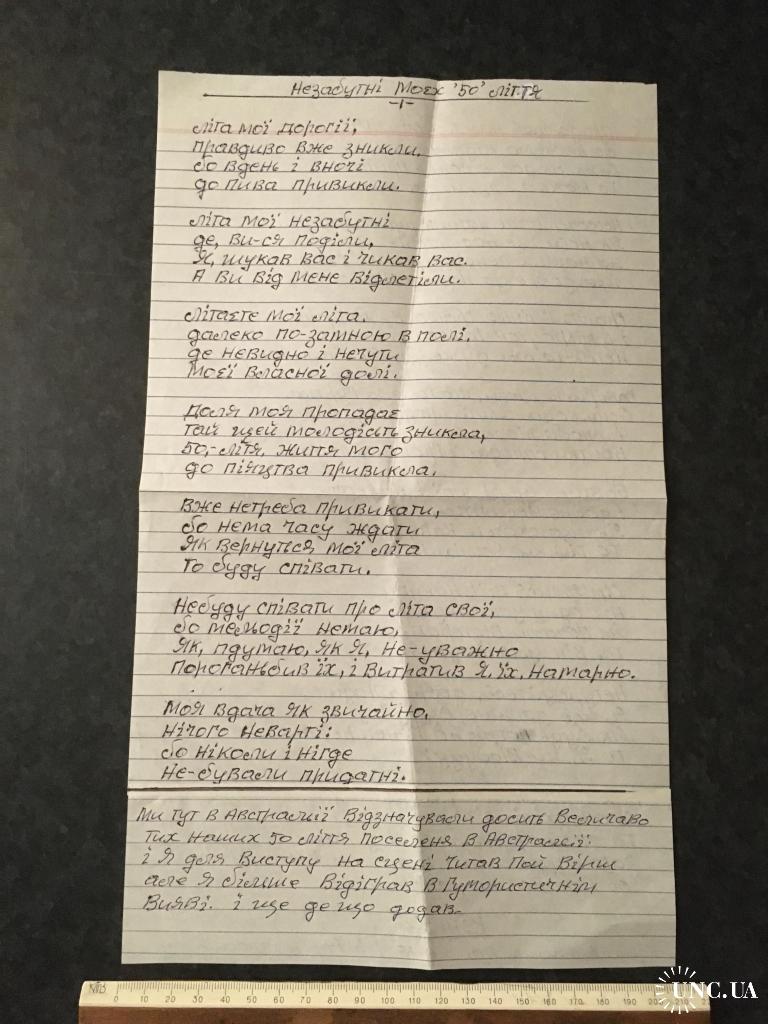 Незабутні Моєх '50' ліття
-1-
Літа мої дорогії,
правдиво вже зникли,
бо вдень і вночі
до пива привикли.
Літа мої незабутні
де, ви-ся поділи,
Я, шукав вас і чикав вас.
А ви від мене відлетіли.
Літаєте мої літа,
далеко по-замною в полі,
де невидно і нечути
моєї власної долі.
Доля моя пропадає
тай щей молодість зникла,
50,-ліття, життя мого
до піяцтва привикла.
Вже нетреба привикати,
бо нема часу ждати
як вернутся мої літа
то буду співати.
Небуду співати про літа свої,
бо мельодії немаю,
Як, пдумаю, як я, не-уважно
Пороганьбив їх, і витратив я, їх, намарно.
Моя вдача як звичайно,
нічого неварті:
бо ніколи і нігде
не-бували придатні.
Ми тут в Австралії відзначували досить величаво
тих наших 50 ліття поселеня в Австралії.
і я для виступу на сцені читав той вірш
але я більше відіграв в Гумористичнім
вияві. і ще де що додав.
0 10 20 30 40 50 60 70 80 90 100 110 120 130 140 150 160 170 180 190 200 210
UNC.UA